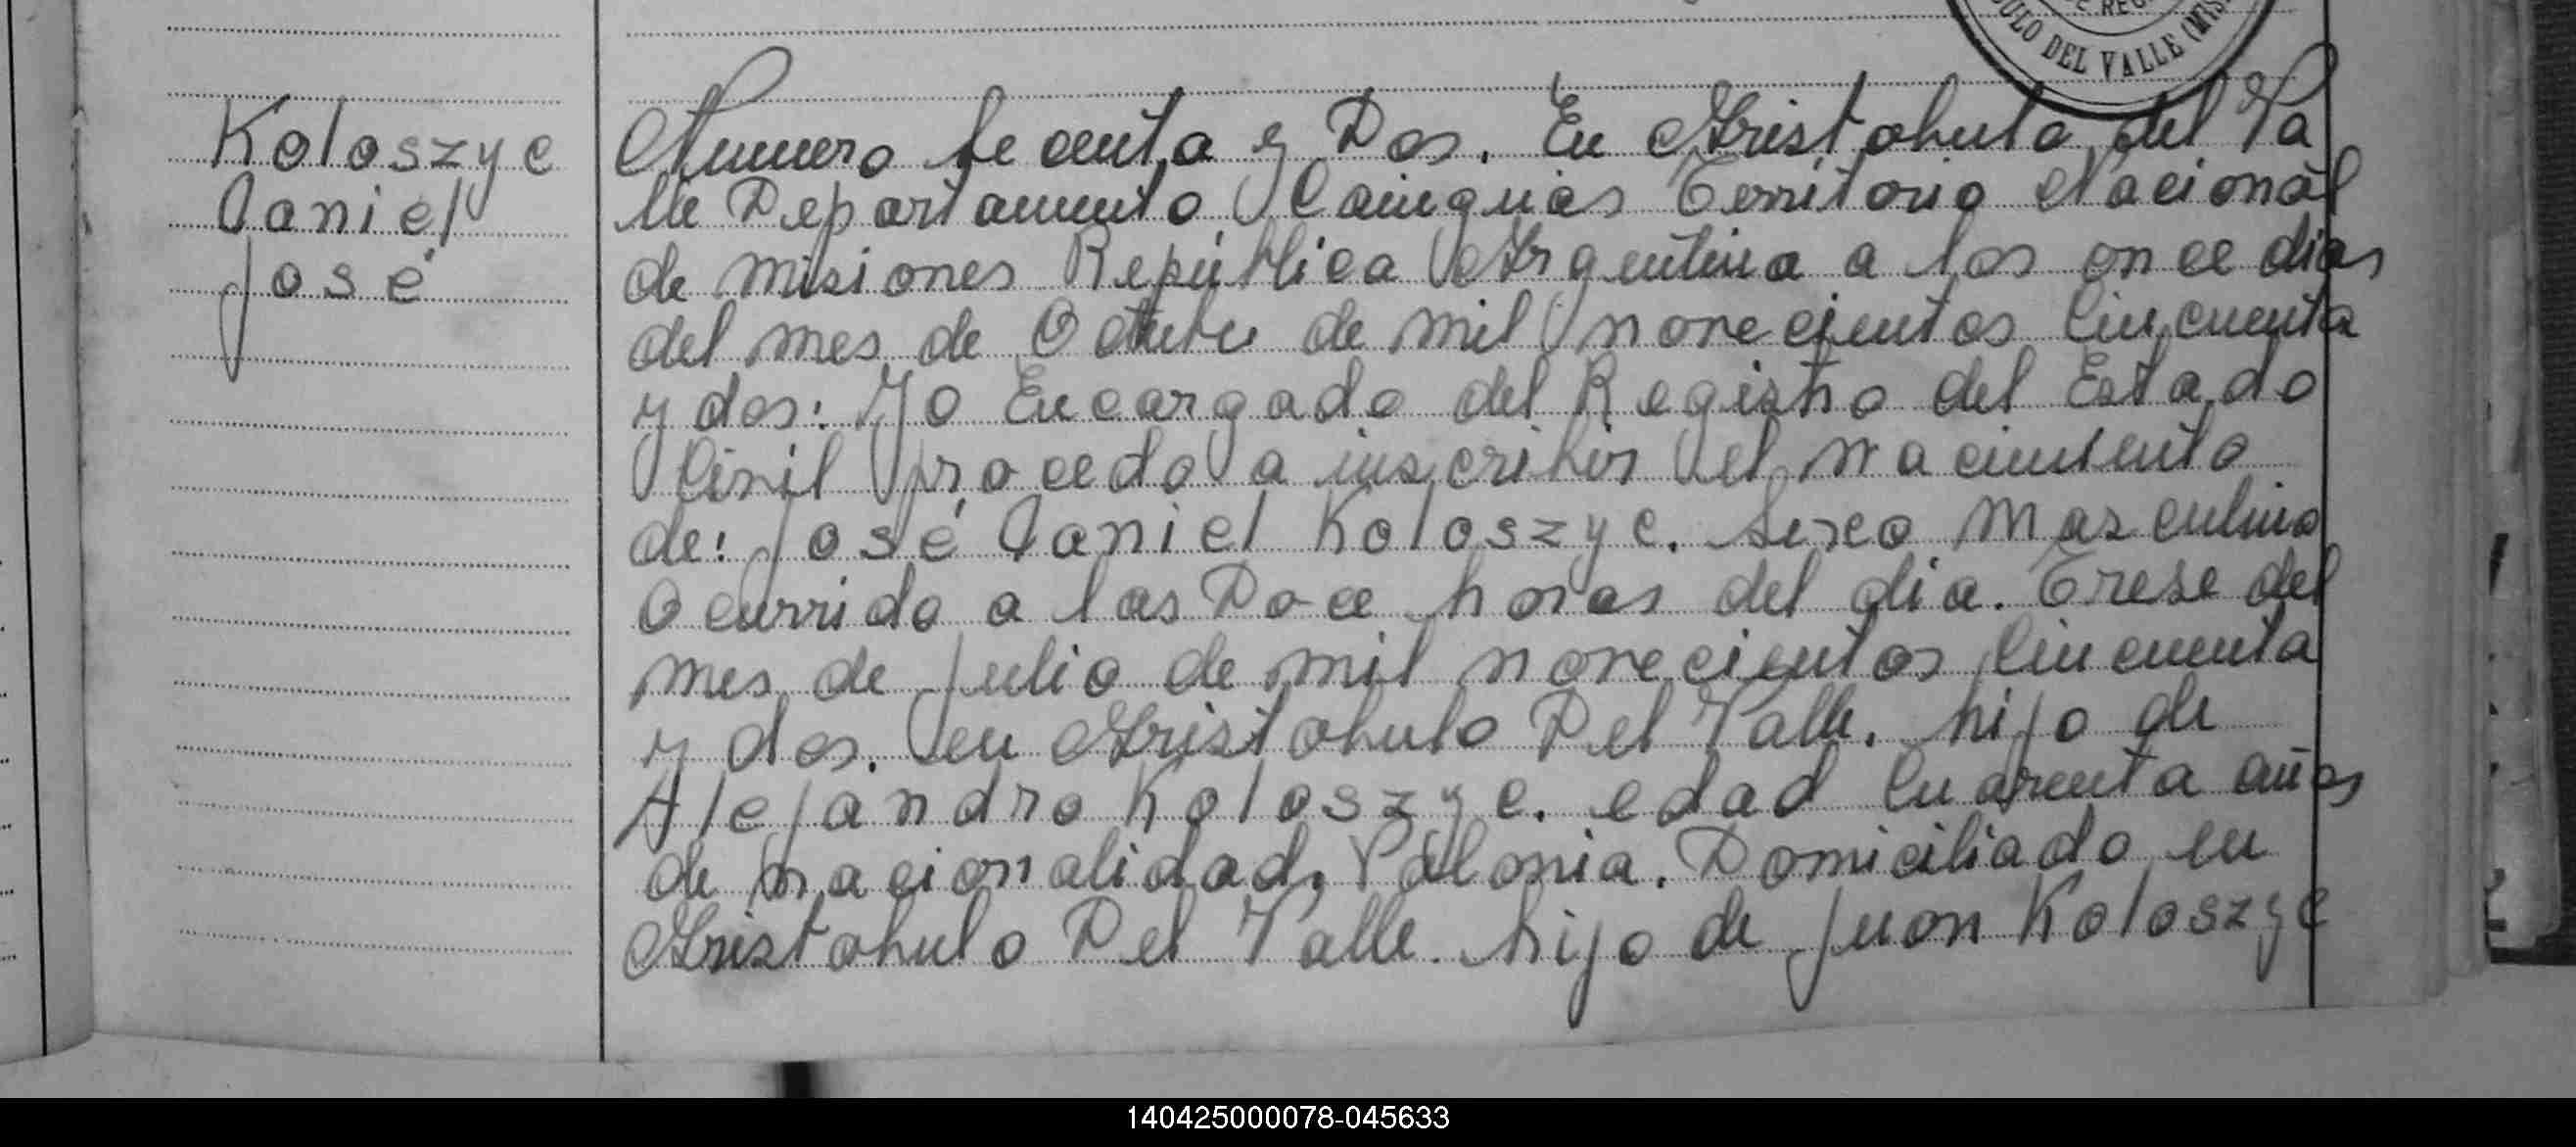 DEL VALLE
Koloszyc
Daniel
José
Numero Secenta y Dos. En Aristobulo del Va
lle Departamento Cainguás Territorio Nacional
de Misiones República Argentina a los once dias
del mes de Octubre de mil novecientos Cincuenta
y dos: Yo Encargado del Registro del Estado
Civil procedo a inscribir el nacimiento
de: José Daniel Koloszyc. Sexo Masculino
Ocurrido a las Doce horas del dia. Trese del
mes de Julio de mil novecientos Cincuenta
y dos. en Aristobulo Del Valle. hijo de
Alejandro Koloszyc. edad Cuarenta años
de nacionalidad, Polonia. Domiciliado en
Aristobulo Del Valle. hijo de Juan Koloszyc
140425000078-045633